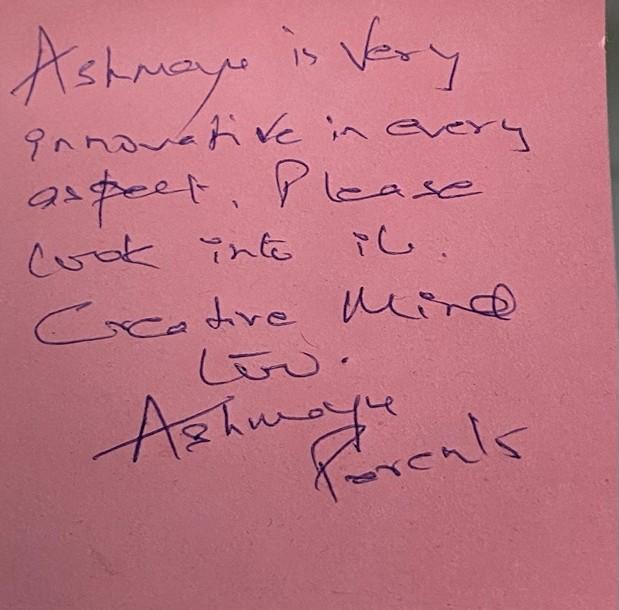 Ashmaye is very
innovative in every
aspect. Please
look into it.
Creative Mind
too.
Ashmaye
Parents